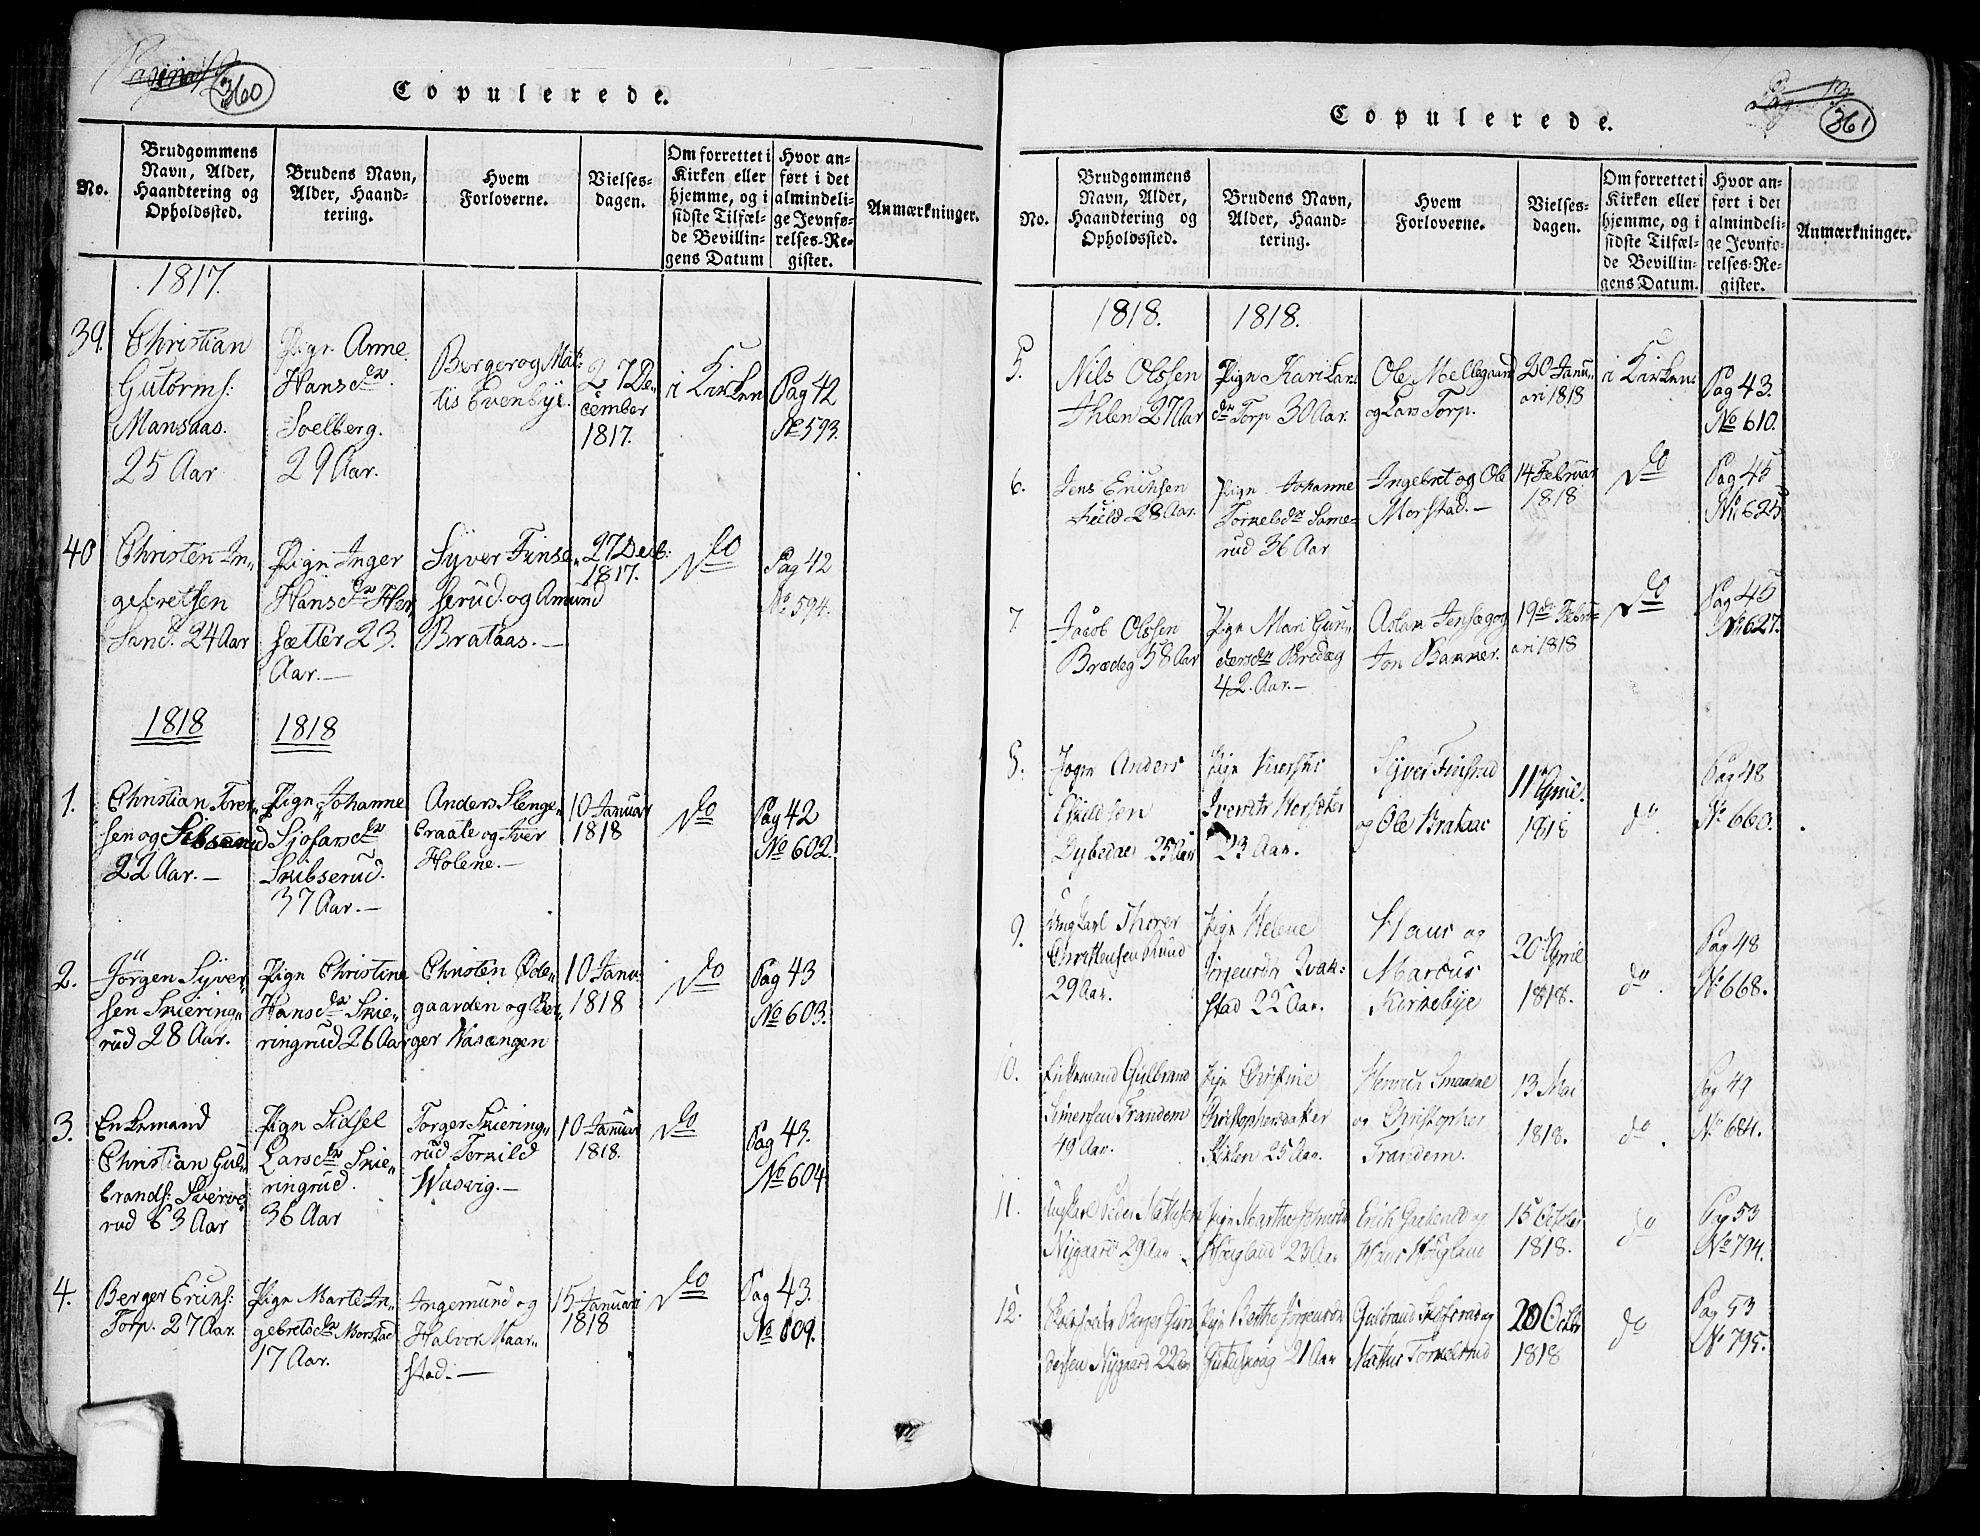 Pagina 12
360
Copulerede.
No.
Brudgommens
Navn, Alder,
Haandtering og
Opholdssted.
Brudens Navn,
Alder, Haand-
tering.
Hvem
Forloverne.
Vielses-
dagen.
Om forrettet i
Kirken eller
hjemme, og i
sidste Tilfæl-
de Bevillin-
gens Datum
Hvor an-
ført i det
almindeli-
ge Jevnfø-
relses-Re-
gister.
Anmærkninger.
1817.
39.
Christian
Gutorms:
Mansaas.
25 Aar
Pign Anne
Hansdr.
Soelberg.
29 Aar.
Berger og Mat:
tis Evenbye.
27 De-
cember
1817.
i Kirken
Pag 42
No 593.
40
Christen In-
gebretsen
Sand. 24 Aar
Pign Inger
Hansdr Her-
sætter 23.
Aar.—
Syver Finse-
serud og Amund
Brataas.—
27 Decb:
1817.
do
Pag 42
No 594.
1818
1818
1.
Christian Torer-
sen og Sibserud
22 Aar.—
Pign Johanne
Sjofarsdr
Skibserud.
37 Aar.—
Anders Slenge-
braate og Iver
Holene.—
10 Januar
1818
do
Pag 42
No 602.
2.
Jörgen Syver-
sen Skiering-
rud 28 Aar.
Pign Christine
Hansdr Skie-
ringrud 26 Aar
Christen Ode-
gaarden og Ber-
ger Wasængen
10 Janu:
1818
do
Pag 43
No 603.
3.
Enkemand
Christian Gul-
brands: Sverve-
rud 63 Aar
Pign Sidsel
Larsdr Skie-
ringrud.
36 Aar
Torger Skiering-
rud Torkild
Wasvig.—
10 Januar
1818.
do
Pag 43.
No 604
4.
Berger Ericks:
Torp. 27 Aar.
Pign Marte In-
gebretsdr Morstad
17 Aar.
Ingemund og
Halvor Maar-
stad.—
15 Januari
1818
do
Pag 43.
No 609.
Pag. 13
361
Copulerede.
No.
Brudgommens
Navn, Alder,
Haandtering og
Opholdssted.
Brudens Navn,
Alder, Haand-
tering.
Hvem
Forloverne.
Vielses-
dagen.
Om forrettet i
Kirken eller
hjemme, og i
sidste Tilfæl-
de Bevillin-
gens Datum.
Hvor an-
ført i det
almindeli-
ge Jevnfø-
relses-Re-
gister.
Anmærkninger.
1818.
1818.
5.
Nils Olssen
Ihlen 27 Aar
Pign Kari Lars
dr Torp 30 Aar.
Ole Mellegaard
og Lars Torp.
20 Janu-
ari 1818
i Kirken
Pag 43.
No 610.
6.
Jens Erichsen
28 Aar.
Pign Johanne
Torkelsdr Same-
rud 36 Aar
Ingebret og Ole
Morstad.—
14 Februar
1818
do
Pag 45
No 625
7
Jacob Olssen
Brædeg 58 Aar
Pign Mari Gun-
dersdr Bredæg
42 Aar.—
Aslan Jensæg og
Jon Banner.
19de Febru-
ari 1818
do
Pag 45
No 627.
8.
Anders
Dybedal 25 Aar
Pign
Iversdr Hersæter
23 Aar.
Syver Finsrud
og Ole Brataas
11 April
1818
do.
Pag 48
No 660.
9.
Ungkarl Thorer
Christensen Ruud
29 Aar.
Pign Helene
Jörgensdr Kvak-
stad 22 Aar.
Hans og
Marcus
Kirkebye
20 April
1818.
do.
Pag 48
No 668.
10.
Enkemand Gulbrand
Simensen Trandem
49 Aar.
Pign Christine
Christophersdatter
25 Aar.
Henrich Smaarne
og Christopher
Trandem.
13 Mai
1818.
do.
Pag 49
No 684.
11.
Ungkarl Peder Mathisen
Nygaard 29 Aar
Pign Marthe
Houglund 23 Aar
Erik og
Hans Houglund
15 October
1818.
do
Pag 53
No 794.
12.
Berger Gun-
dersen Nygaard 22 Aar
Pign Berthe Jörgensdr
21 Aar
Gulbrand og
Mathis Torkelsrud
20 Octbr
1818
do
Pag 53
No 795.